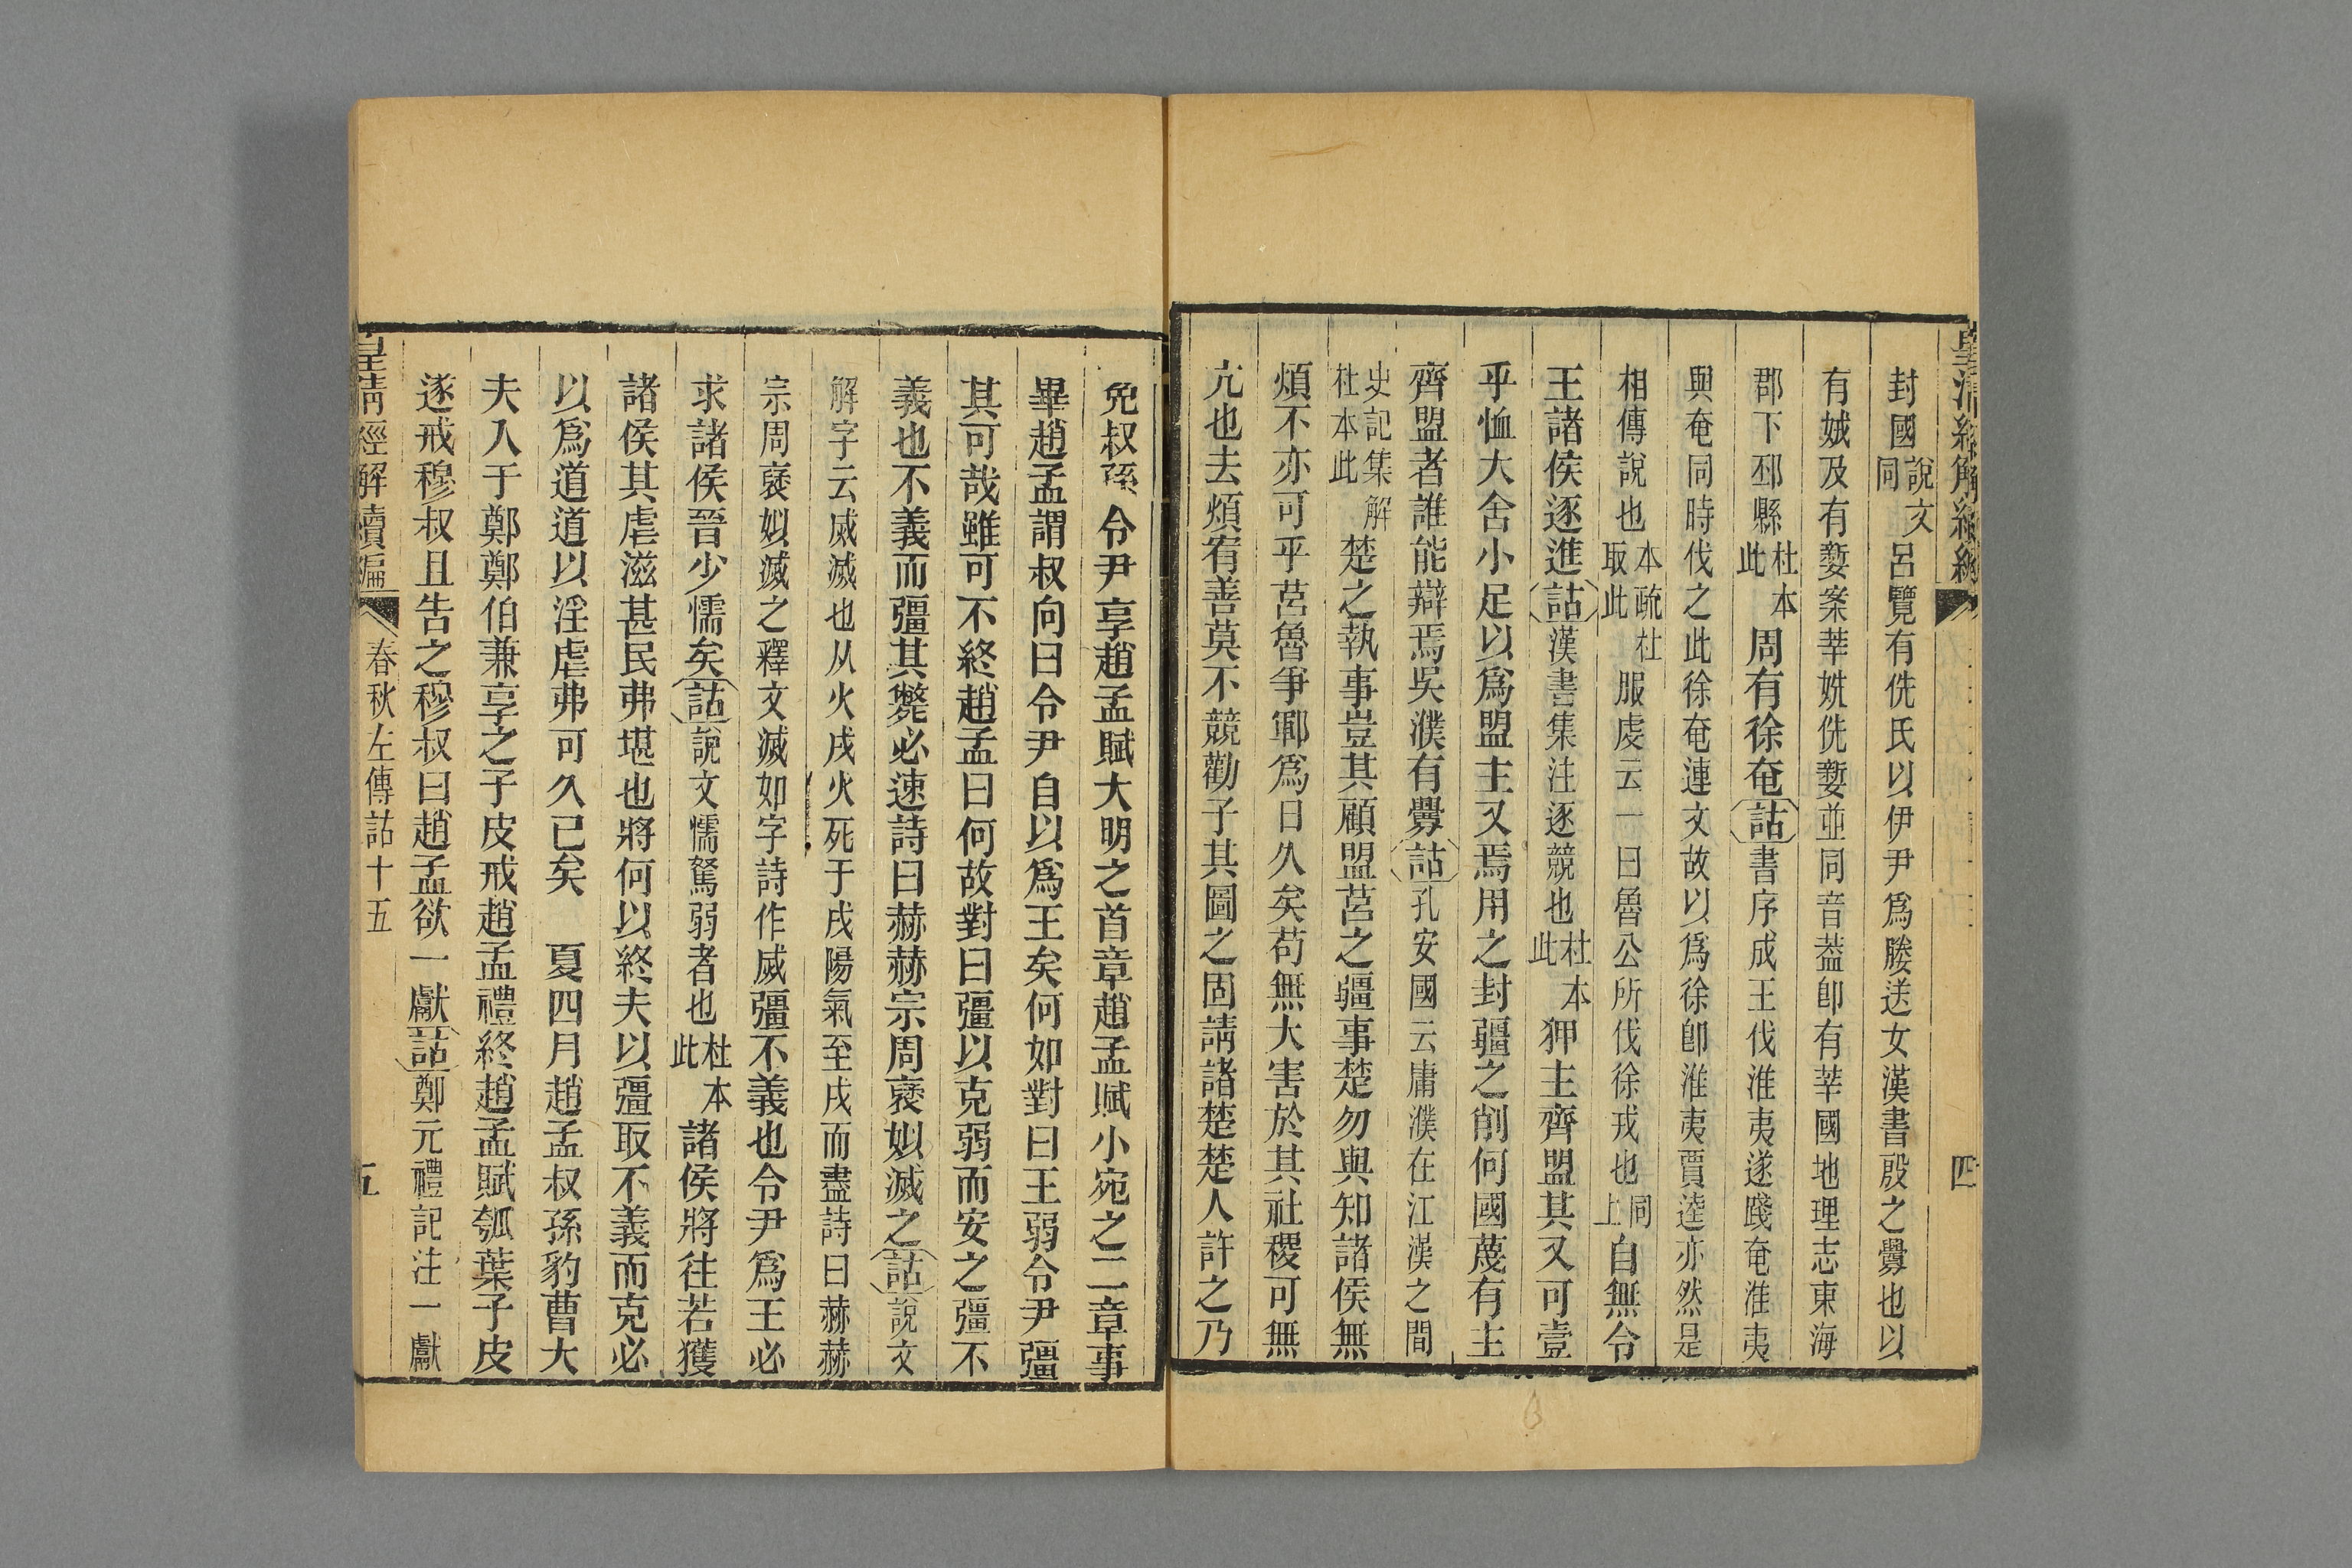 皇清經解續編
四
封國說文同呂覽有侁氏以伊尹爲媵送女漢書殷之釁也以
有娀及有㜪案莘姺侁㜪並同音葢卽有莘國地理志東海
郡下邳縣杜本此周有徐奄詁書序成王伐淮夷遂踐奄淮夷
與奄同時伐之此徐奄連文故以爲徐卽淮夷賈逵亦然是
相傳說也本疏杜取此服虔云一曰魯公所伐徐戎也同上自無令
王諸侯逐進詁漢書集注逐競也杜本此狎主齊盟其又可壹
乎恤大舍小足以爲盟主又焉用之封疆之削何國蔑有主
齊盟者誰能辯焉吳濮有釁詁孔安國云庸濮在江漢之間
史記集解杜本此楚之執事豈其顧盟莒之疆事楚勿與知諸侯無
煩不亦可乎莒魯爭鄆爲日久矣苟無大害於其社稷可無
亢也去煩宥善莫不競勸子其圖之固請諸楚楚人許之乃
免叔孫令尹享趙孟賦大明之首章趙孟賦小宛之二章事
畢趙孟謂叔向曰令尹自以爲王矣何如對曰王弱令尹彊
其可哉雖可不終趙孟曰何故對曰彊以克弱而安之彊不
義也不義而彊其斃必速詩曰赫赫宗周襃姒滅之詁說文
解字云烕滅也从火戌火死于戌陽氣至戌而盡詩曰赫赫
宗周襃姒滅之釋文滅如字詩作烕彊不義也令尹爲王必
求諸侯晉少懦矣詁說文懦駑弱者也杜本此諸侯將往若獲
諸侯其虐滋甚民弗堪也將何以終夫以彊取不義而克必
以爲道道以淫虐弗可久已矣　夏四月趙孟叔孫豹曹大
夫入于鄭鄭伯兼享之子皮戒趙孟禮終趙孟賦瓠葉子皮
遂戒穆叔且告之穆叔曰趙孟欲一獻詁鄭元禮記注一獻
皇清經解續編
春秋左傳詁十五
五